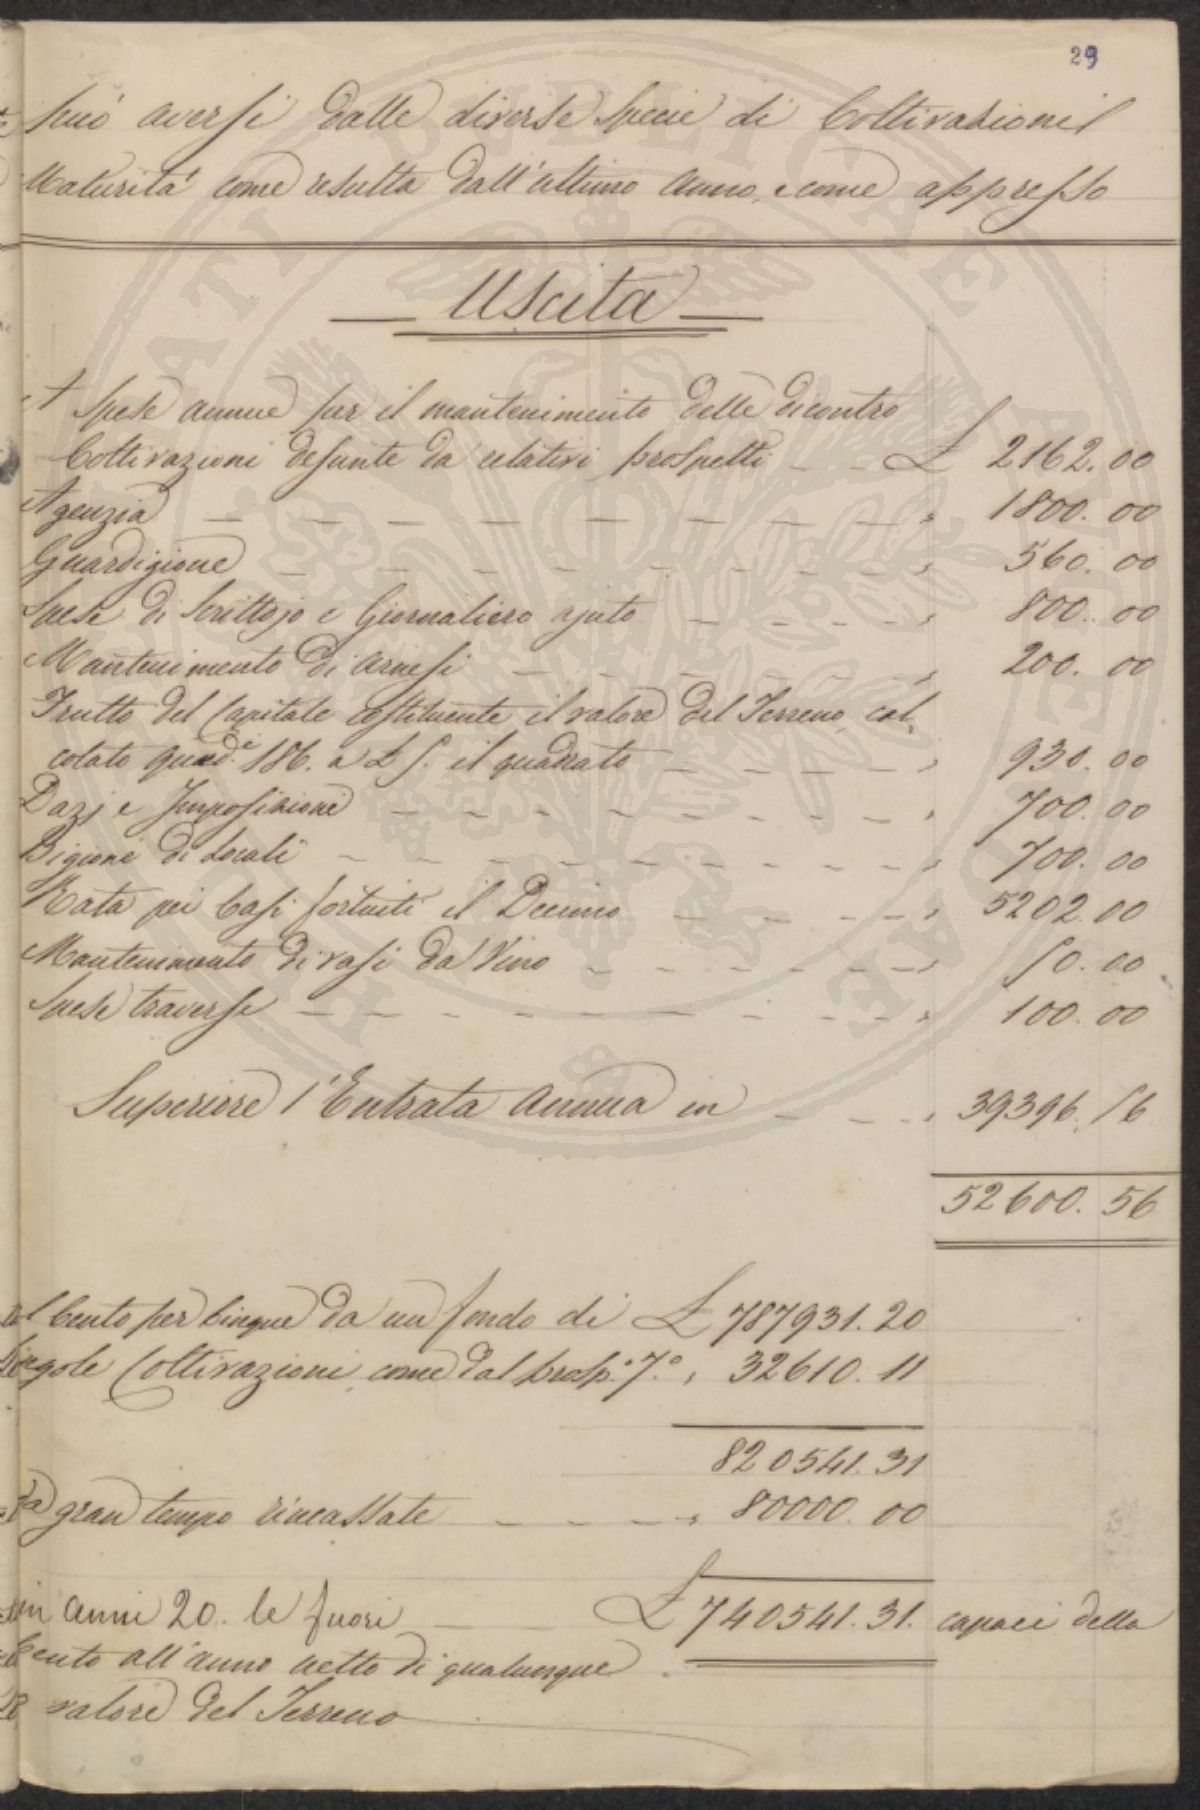 29
può aversi dalle diverse specie di Coltivazioni
Maturità come resulta dall'ultimo anno, e come appresso
Uscita
A Spese annue per il mantenimento delle dicontro
Coltivazioni desunte da relativi prospetti £ 2162.00
Agenzia 1800.00
Guardigione 560.00
Spese di Scrittojo e Giornaliero ajuto 800.00
Mantenimento di arnesi 200.00
Frutto del Capitale costituente il valore del Terreno cal
colato quad.i 186. a £ 5. il quadrato 930.00
Dazj e Imposizioni 700.00
Pigioni di Locali 700.00
Rata pei Casi fortuiti il Decimo 5202.00
Mantenimento di vasi da Vino 50.00
Spese traverse 100.00
Superiore l'Entrata annua in 39396.56
52600.56
al Cento per Cinque da un fondo di £ 787931.20
Singole Coltivazioni come dal prosp.o 7.o 32610.11
820541.31
gran tempo rincassate 80000.00
in anni 20. le fuori £ 740541.31. capaci della
Cento all'anno netto di qualunque
valore del Terreno